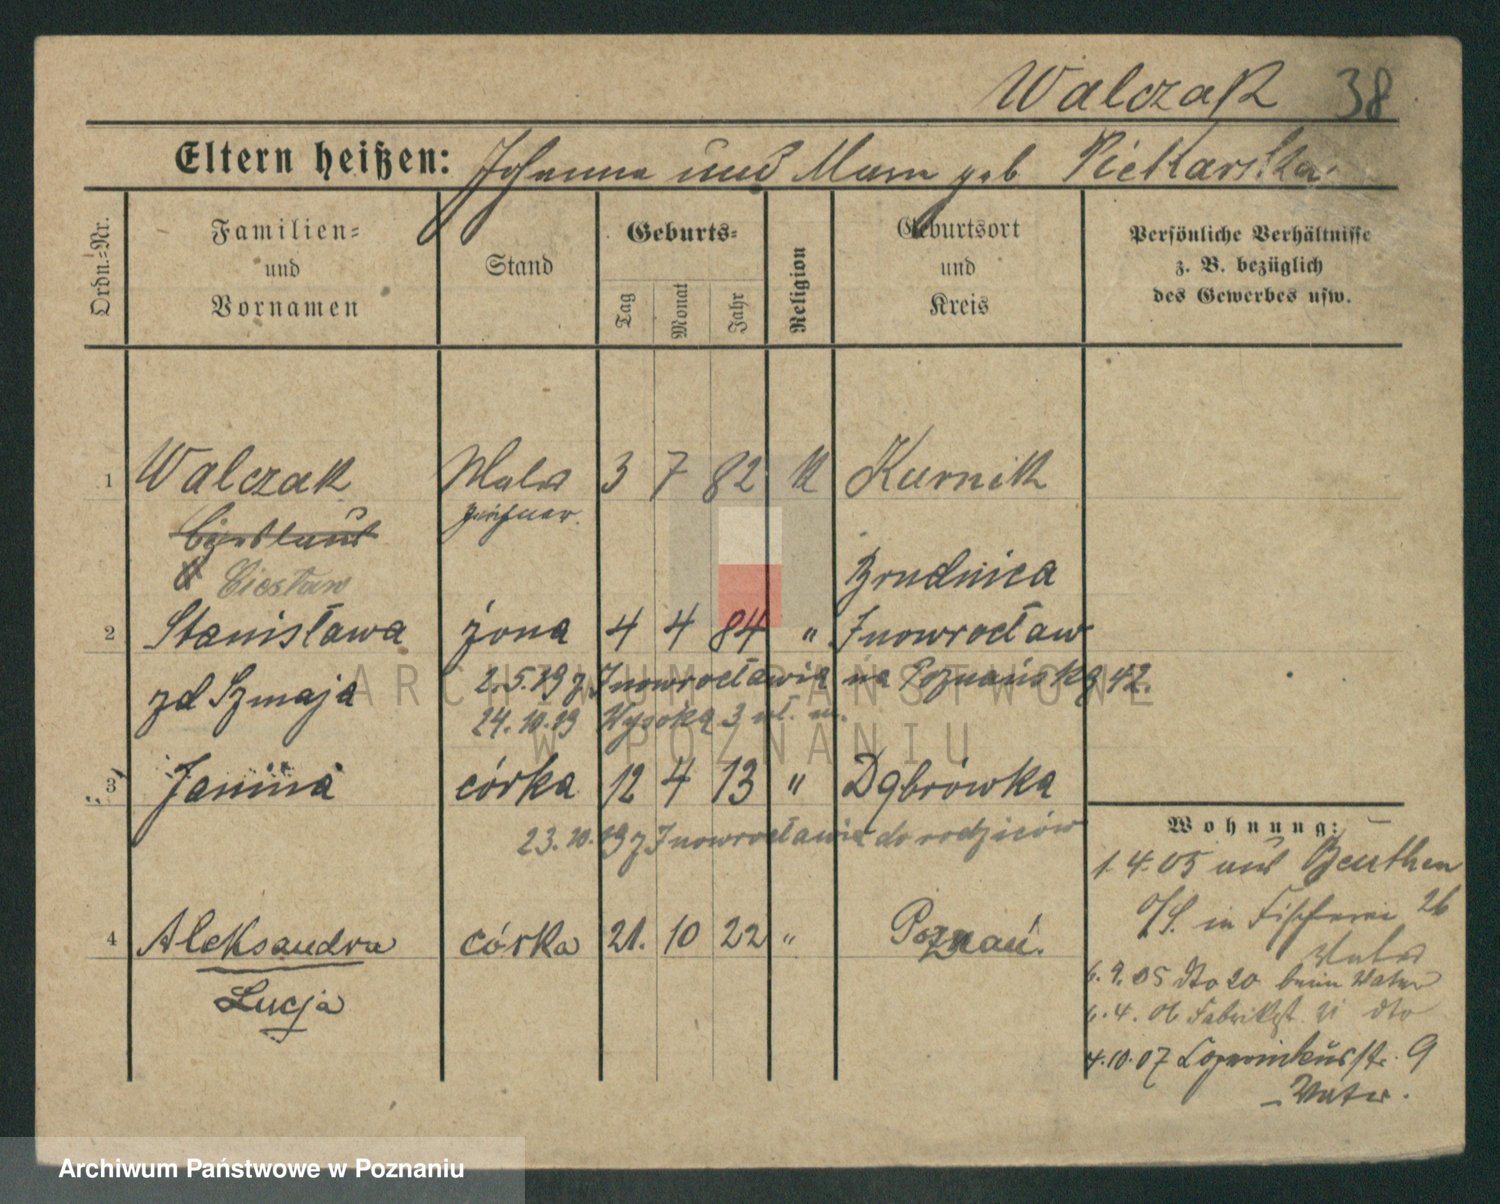 Walczak 38
Eltern heißen: und geb Piekarska
Ordn.=Nr.
Familien= und Vornamen
Stand
Geburts=
Tag Monat Jahr
Religion
Geburtsort und Kreis
Persönliche Verhältnisse z. B. bezüglich des Gewerbes usw.
1 Walczak 3 7 82 k Kurnik
Ciesław
Brudnica
2 Stanisława żona 4 4 84 " Inowrocław
zd Szmaja 2.5.19 z Inowrocławia na Poznańską 42.
24.10.19 Wysoką 3
3 Janina córka 12 4 13 " Dąbrówka
23.10.19 z Inowrocławia do rodziców
4 Aleksandra córka 21. 10 22 " Poznań.
Lucja
Wohnung:
1.4.05 aus Beuthen
O/S. in Fischerei 26
Vater
6.9.05 dto 20 beim Vater
6.4.06 Fabrikst dto
4.10.07 9
Vater.
ARCHIWUM PAŃSTWOWE
W POZNANIU
Archiwum Państwowe w Poznaniu